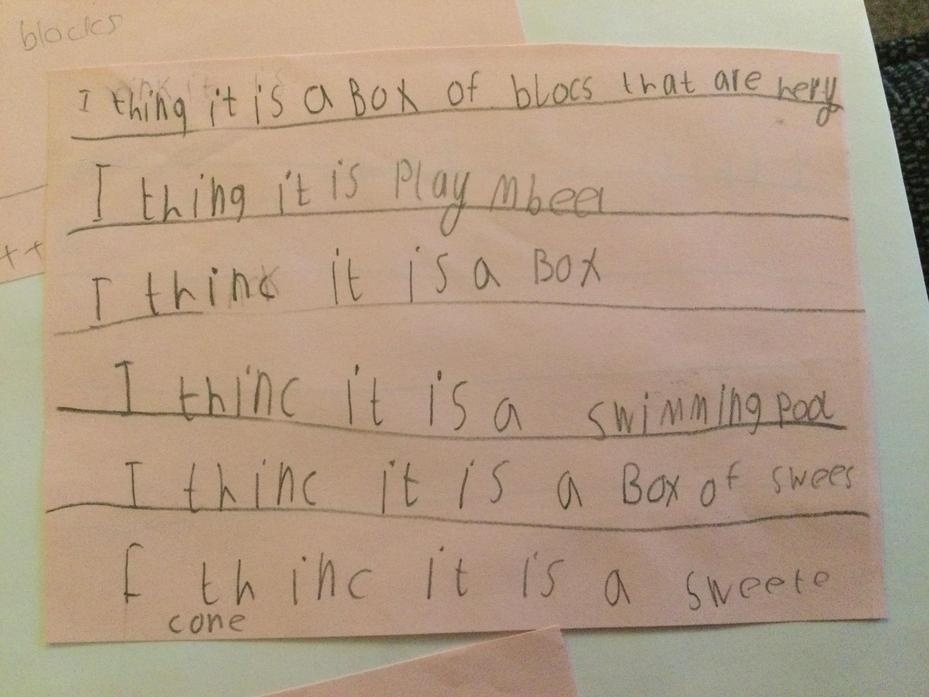 blocks
I thing it is a Box of blocs that are hery
I thing it is Play Mbeel
++
I thinc it is a Box
I thinc it is a swimming pool
I thinc it is a Box of swees
I thinc it is a sweete
cone